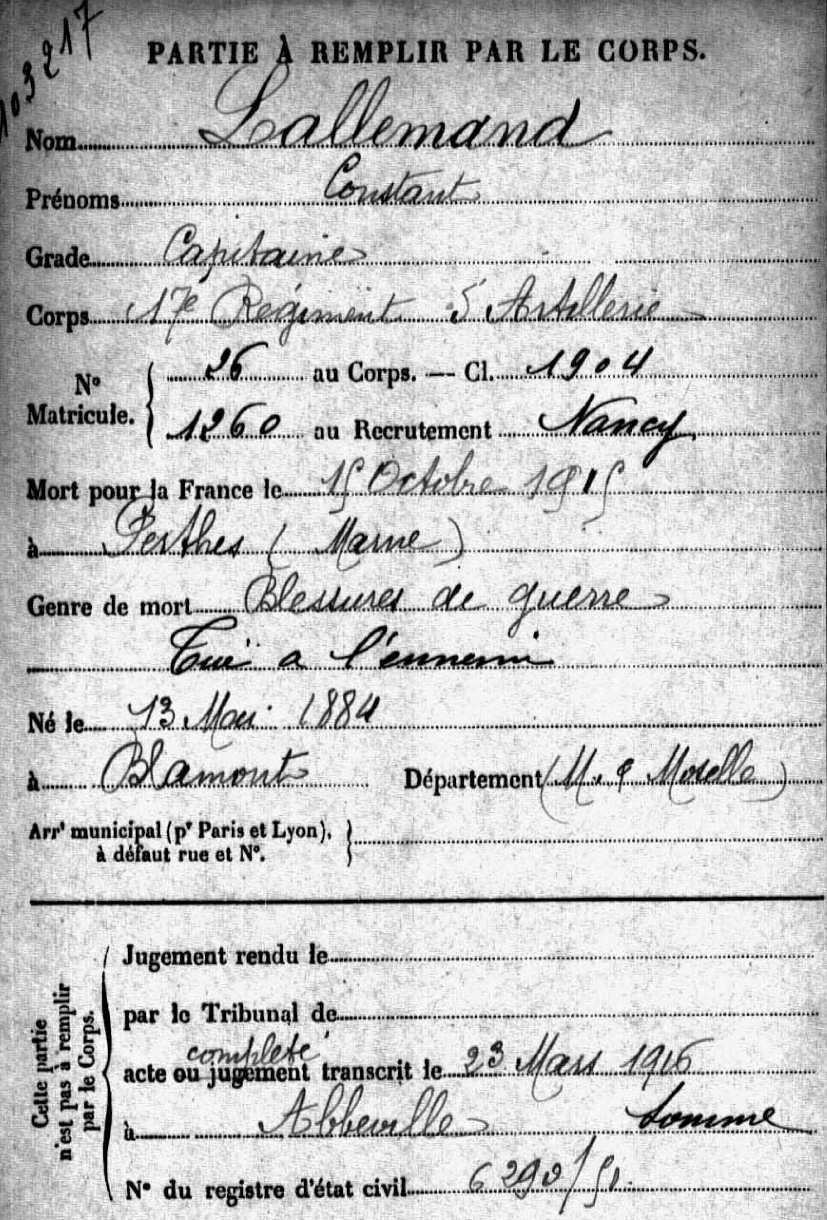 103217
PARTIE À REMPLIR PAR LE CORPS.
Nom Lallemand
Prénoms Constant
Grade Capitaine
Corps 17e Régiment d'Artillerie
N° Matricule. 26 au Corps. — Cl. 1904
1260 au Recrutement Nancy
Mort pour la France le 15 Octobre 1915
à Perthes (Marne)
Genre de mort Blessures de guerre
Tué a l'ennemi
Né le 13 Mai 1884
à Blamont Département (M. & Moselle)
Arrt municipal (pr Paris et Lyon),
à défaut rue et N°.
Cette partie n'est pas à remplir par le Corps.
Jugement rendu le
par le Tribunal de
complété
acte ou jugement transcrit le 23 Mars 1916
à Abbeville Somme
N° du registre d'état civil